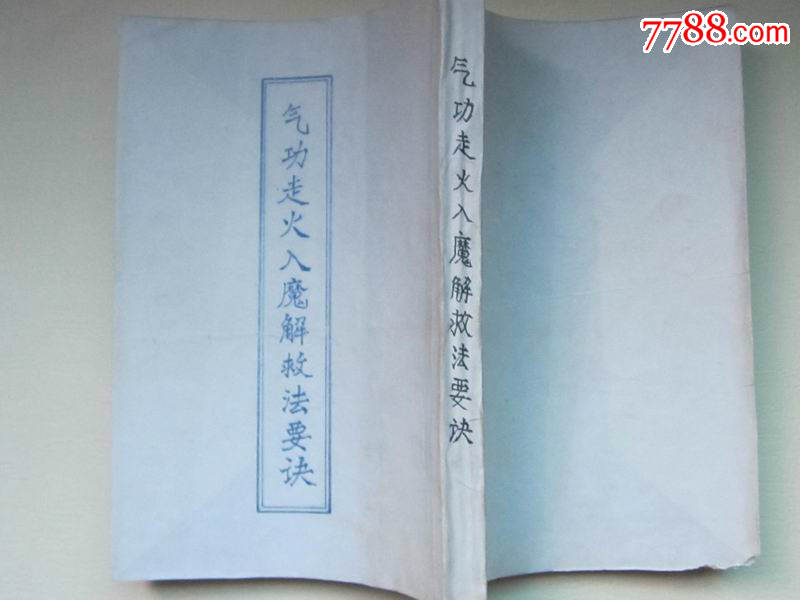 7788.com
气功走火入魔解救法要诀
气功走火入魔解救法要诀